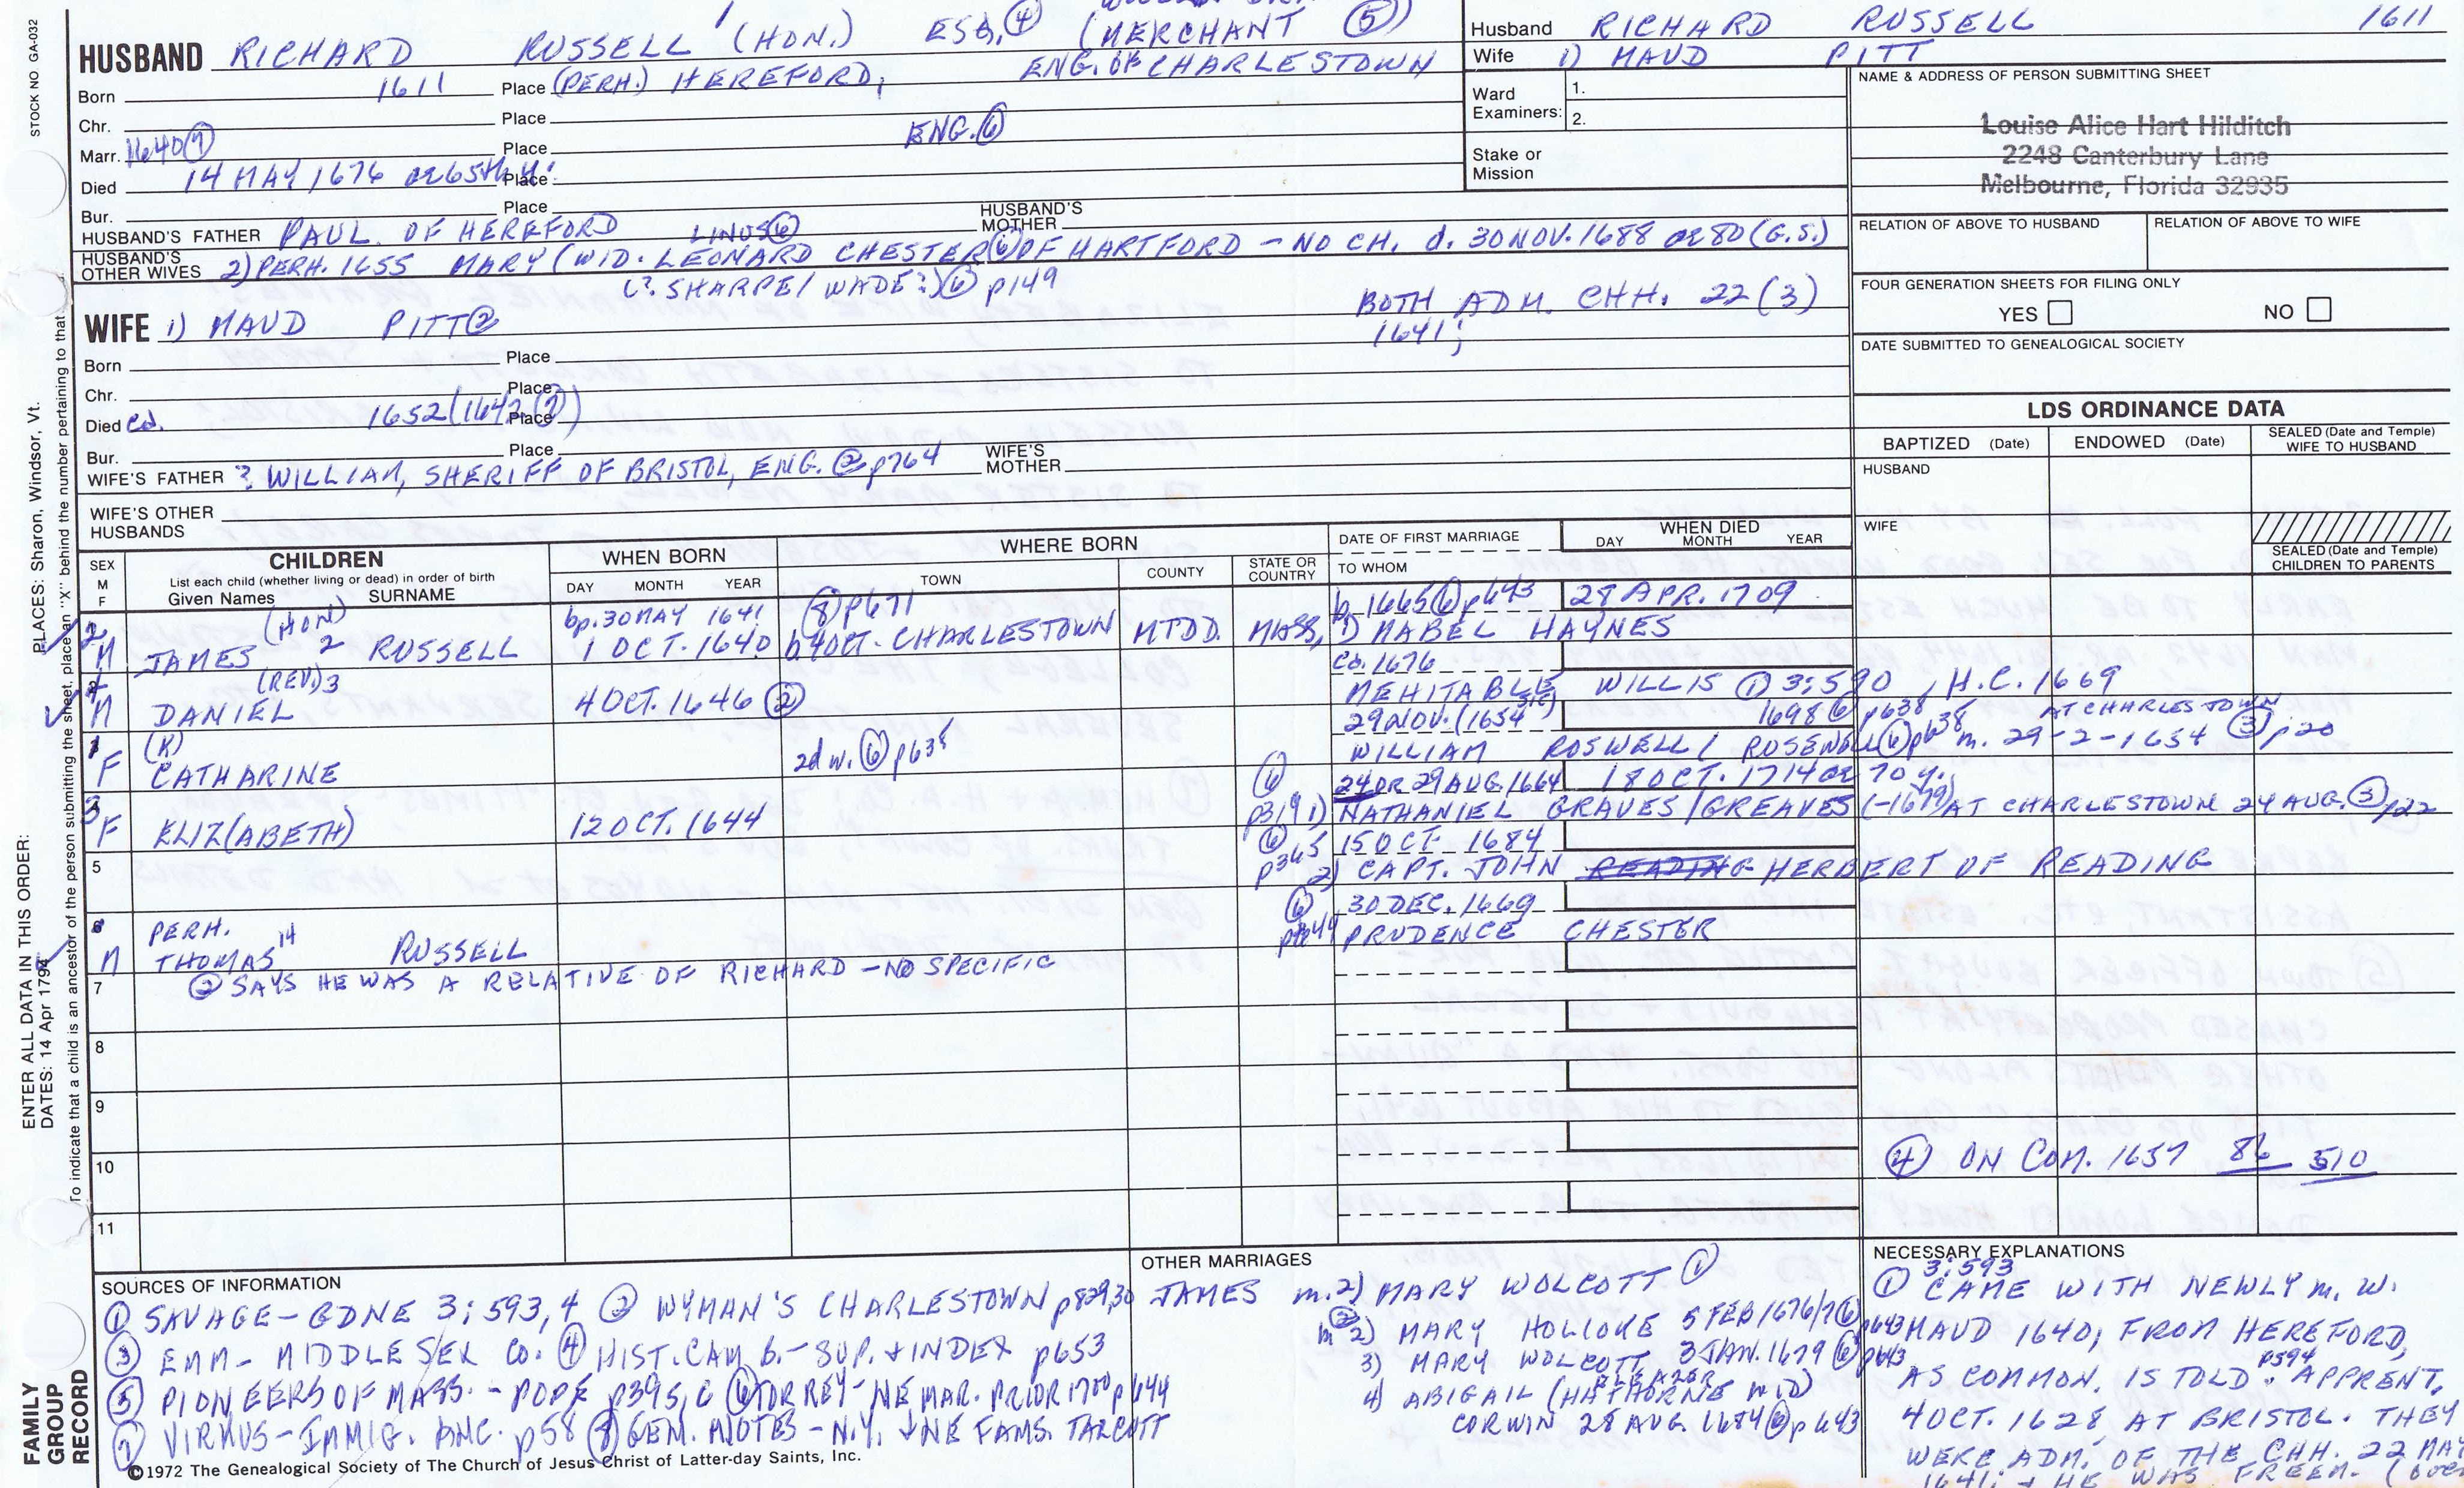 STOCK NO. GA-032
HUSBAND RICHARD RUSSELL (HON.) ESQ. ④ (MERCHANT ⑤)
ENG. OF CHARLESTOWN
Born 1611 Place (PERH.) HEREFORD,
Chr. Place ENG. ⑥
Marr. 1640 ⑦ Place
Died 14 MAY 1676 Place
Bur. Place
HUSBAND'S FATHER PAUL OF HEREFORD HUSBAND'S MOTHER
HUSBAND'S OTHER WIVES 2) PERH. 1655 MARY (WID. LEONARD CHESTER ⑥ OF HARTFORD - NO CH. d. 30 NOV. 1688 ae 80 (G.S.)
(? SHARPE / WADE?) ⑥ p149
WIFE 1) MAUD PITT ②
BOTH ADM. CHH. 22 (3)
1641;
Born Place
Chr. Place
Died 1652 (1642 ⑦) Place
Bur. Place
WIFE'S FATHER ? WILLIAM, SHERIFF OF BRISTOL, ENG. ② p764 WIFE'S MOTHER
WIFE'S OTHER HUSBANDS
Husband RICHARD RUSSELL 1611
Wife 1) MAUD PITT
Ward Examiners: 1.
2.
Stake or Mission
NAME & ADDRESS OF PERSON SUBMITTING SHEET
Louise Alice Hart Hilditch
2248 Canterbury Lane
Melbourne, Florida 32935
RELATION OF ABOVE TO HUSBAND RELATION OF ABOVE TO WIFE
FOUR GENERATION SHEETS FOR FILING ONLY
YES NO
DATE SUBMITTED TO GENEALOGICAL SOCIETY
LDS ORDINANCE DATA
BAPTIZED (Date) ENDOWED (Date) SEALED (Date and Temple) WIFE TO HUSBAND
HUSBAND
WIFE
SEALED (Date and Temple) CHILDREN TO PARENTS
SEX M F
CHILDREN
List each child (whether living or dead) in order of birth
Given Names SURNAME
WHEN BORN
DAY MONTH YEAR
WHERE BORN
TOWN COUNTY STATE OR COUNTRY
DATE OF FIRST MARRIAGE
TO WHOM
WHEN DIED
DAY MONTH YEAR
(HON) bp. 30 MAY 1641 ⑧ p671 b. 1665 ⑥ p643 28 APR. 1709
2 M JAMES 2 RUSSELL 1 OCT. 1640 CHARLESTOWN MIDD. MASS, 1) MABEL HAYNES
(REV.) 3 1676
M DANIEL 4 OCT. 1646 ② MEHITABLE WILLIS ① 3:590, H.C. 1669
29 NOV. (1654 SIC) 1698 ⑥ p638 AT CHARLESTOWN
1 F (K) CATHARINE 2d w. ⑥ p638 WILLIAM ROSWELL / ROSEWELL ⑥ p638 m. 29-2-1654 ③ p20
⑥ 24 OR 29 AUG. 1664 18 OCT. 1714 ae 70 y.
3 F ELIZ(ABETH) 12 OCT. 1644 p319 1) NATHANIEL GRAVES / GREAVES (-1679) AT CHARLESTOWN 24 AUG. ③ p22
⑥ 15 OCT. 1684
5 p365 2) CAPT. JOHN READING HERBERT OF READING
⑥ 30 DEC. 1669
6 M PERH. THOMAS 14 RUSSELL p644 PRUDENCE CHESTER
7 ② SAYS HE WAS A RELATIVE OF RICHARD - NO SPECIFIC
8
9
10 ④ ON COM. 1657 86 510
11
SOURCES OF INFORMATION
① SAVAGE - GDNE 3:593,4 ② WYMAN'S CHARLESTOWN p829,30
③ EMM - MIDDLESEX CO. ④ HIST. CAMB. - SUP. + INDEX p653
⑤ PIONEERS OF MASS. - POPE p395,6 ⑥ TORREY - NE MAR. PRIOR 1700 p644
⑦ VIRKUS - IMMIG. ANC. p58 ⑧ GEN. NOTES - N.Y. + NE FAMS. TALCOTT
©1972 The Genealogical Society of The Church of Jesus Christ of Latter-day Saints, Inc.
OTHER MARRIAGES
JAMES m. 2) MARY WOLCOTT ①
m ② 2) MARY HOLIOKE 5 FEB 1676/7 ⑥ p643
3) MARY WOLCOTT 3 JAN. 1679 ⑥ p643
4) ABIGAIL (HATHORNE WID) ELEAZER
CORWIN 28 AUG. 1684 ⑥ p643
NECESSARY EXPLANATIONS
① 3:593 CAME WITH NEWLY m. W.
MAUD 1640, FROM HEREFORD,
AS COMMON. IS TOLD. p594 APPRENT.
4 OCT. 1628 AT BRISTOL. THEY
WERE ADM. OF THE CHH. 22 MAY
1641; + HE WAS FREEM. (over
ENTER ALL DATA IN THIS ORDER:
DATES: 14 Apr 1794 PLACES: Sharon, Windsor, Vt.
To indicate that a child is an ancestor of the person submitting the sheet, place an "X" behind the number pertaining to that
FAMILY GROUP RECORD